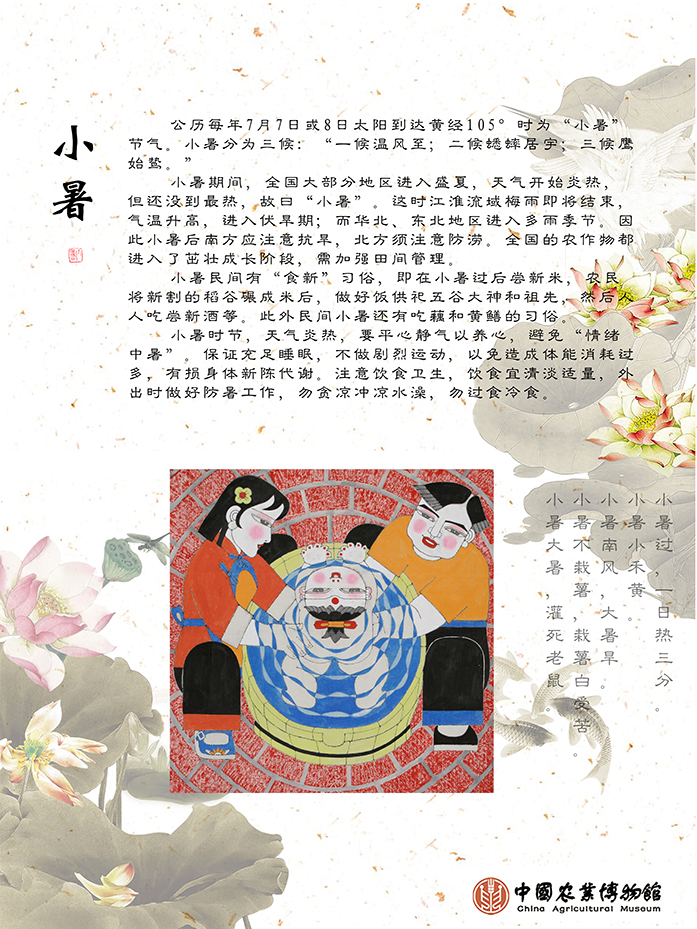 小暑
公历每年7月7日或8日太阳到达黄经105°时为“小暑”
节气。小暑分为三候：“一候温风至；二候蟋蟀居宇；三候鹰
始鸷。”
小暑期间，全国大部分地区进入盛夏，天气开始炎热，
但还没到最热，故曰“小暑”。这时江淮流域梅雨即将结束，
气温升高，进入伏旱期；而华北、东北地区进入多雨季节。因
此小暑后南方应注意抗旱，北方须注意防涝。全国的农作物都
进入了茁壮成长阶段，需加强田间管理。
小暑民间有“食新”习俗，即在小暑过后尝新米，农民
将新割的稻谷碾成米后，做好饭供祀五谷大神和祖先，然后人
人吃尝新酒等。此外民间小暑还有吃藕和黄鳝的习俗。
小暑时节，天气炎热，要平心静气以养心，避免“情绪
中暑”。保证充足睡眠，不做剧烈运动，以免造成体能消耗过
多，有损身体新陈代谢。注意饮食卫生，饮食宜清淡适量，外
出时做好防暑工作，勿贪凉冲凉水澡，勿过食冷食。
小暑过，一日热三分。
小暑小禾黄。
小暑南风，大暑旱。
小暑不栽薯，栽薯白受苦。
小暑大暑，灌死老鼠。
中國农业博物館
China Agricultural Museum